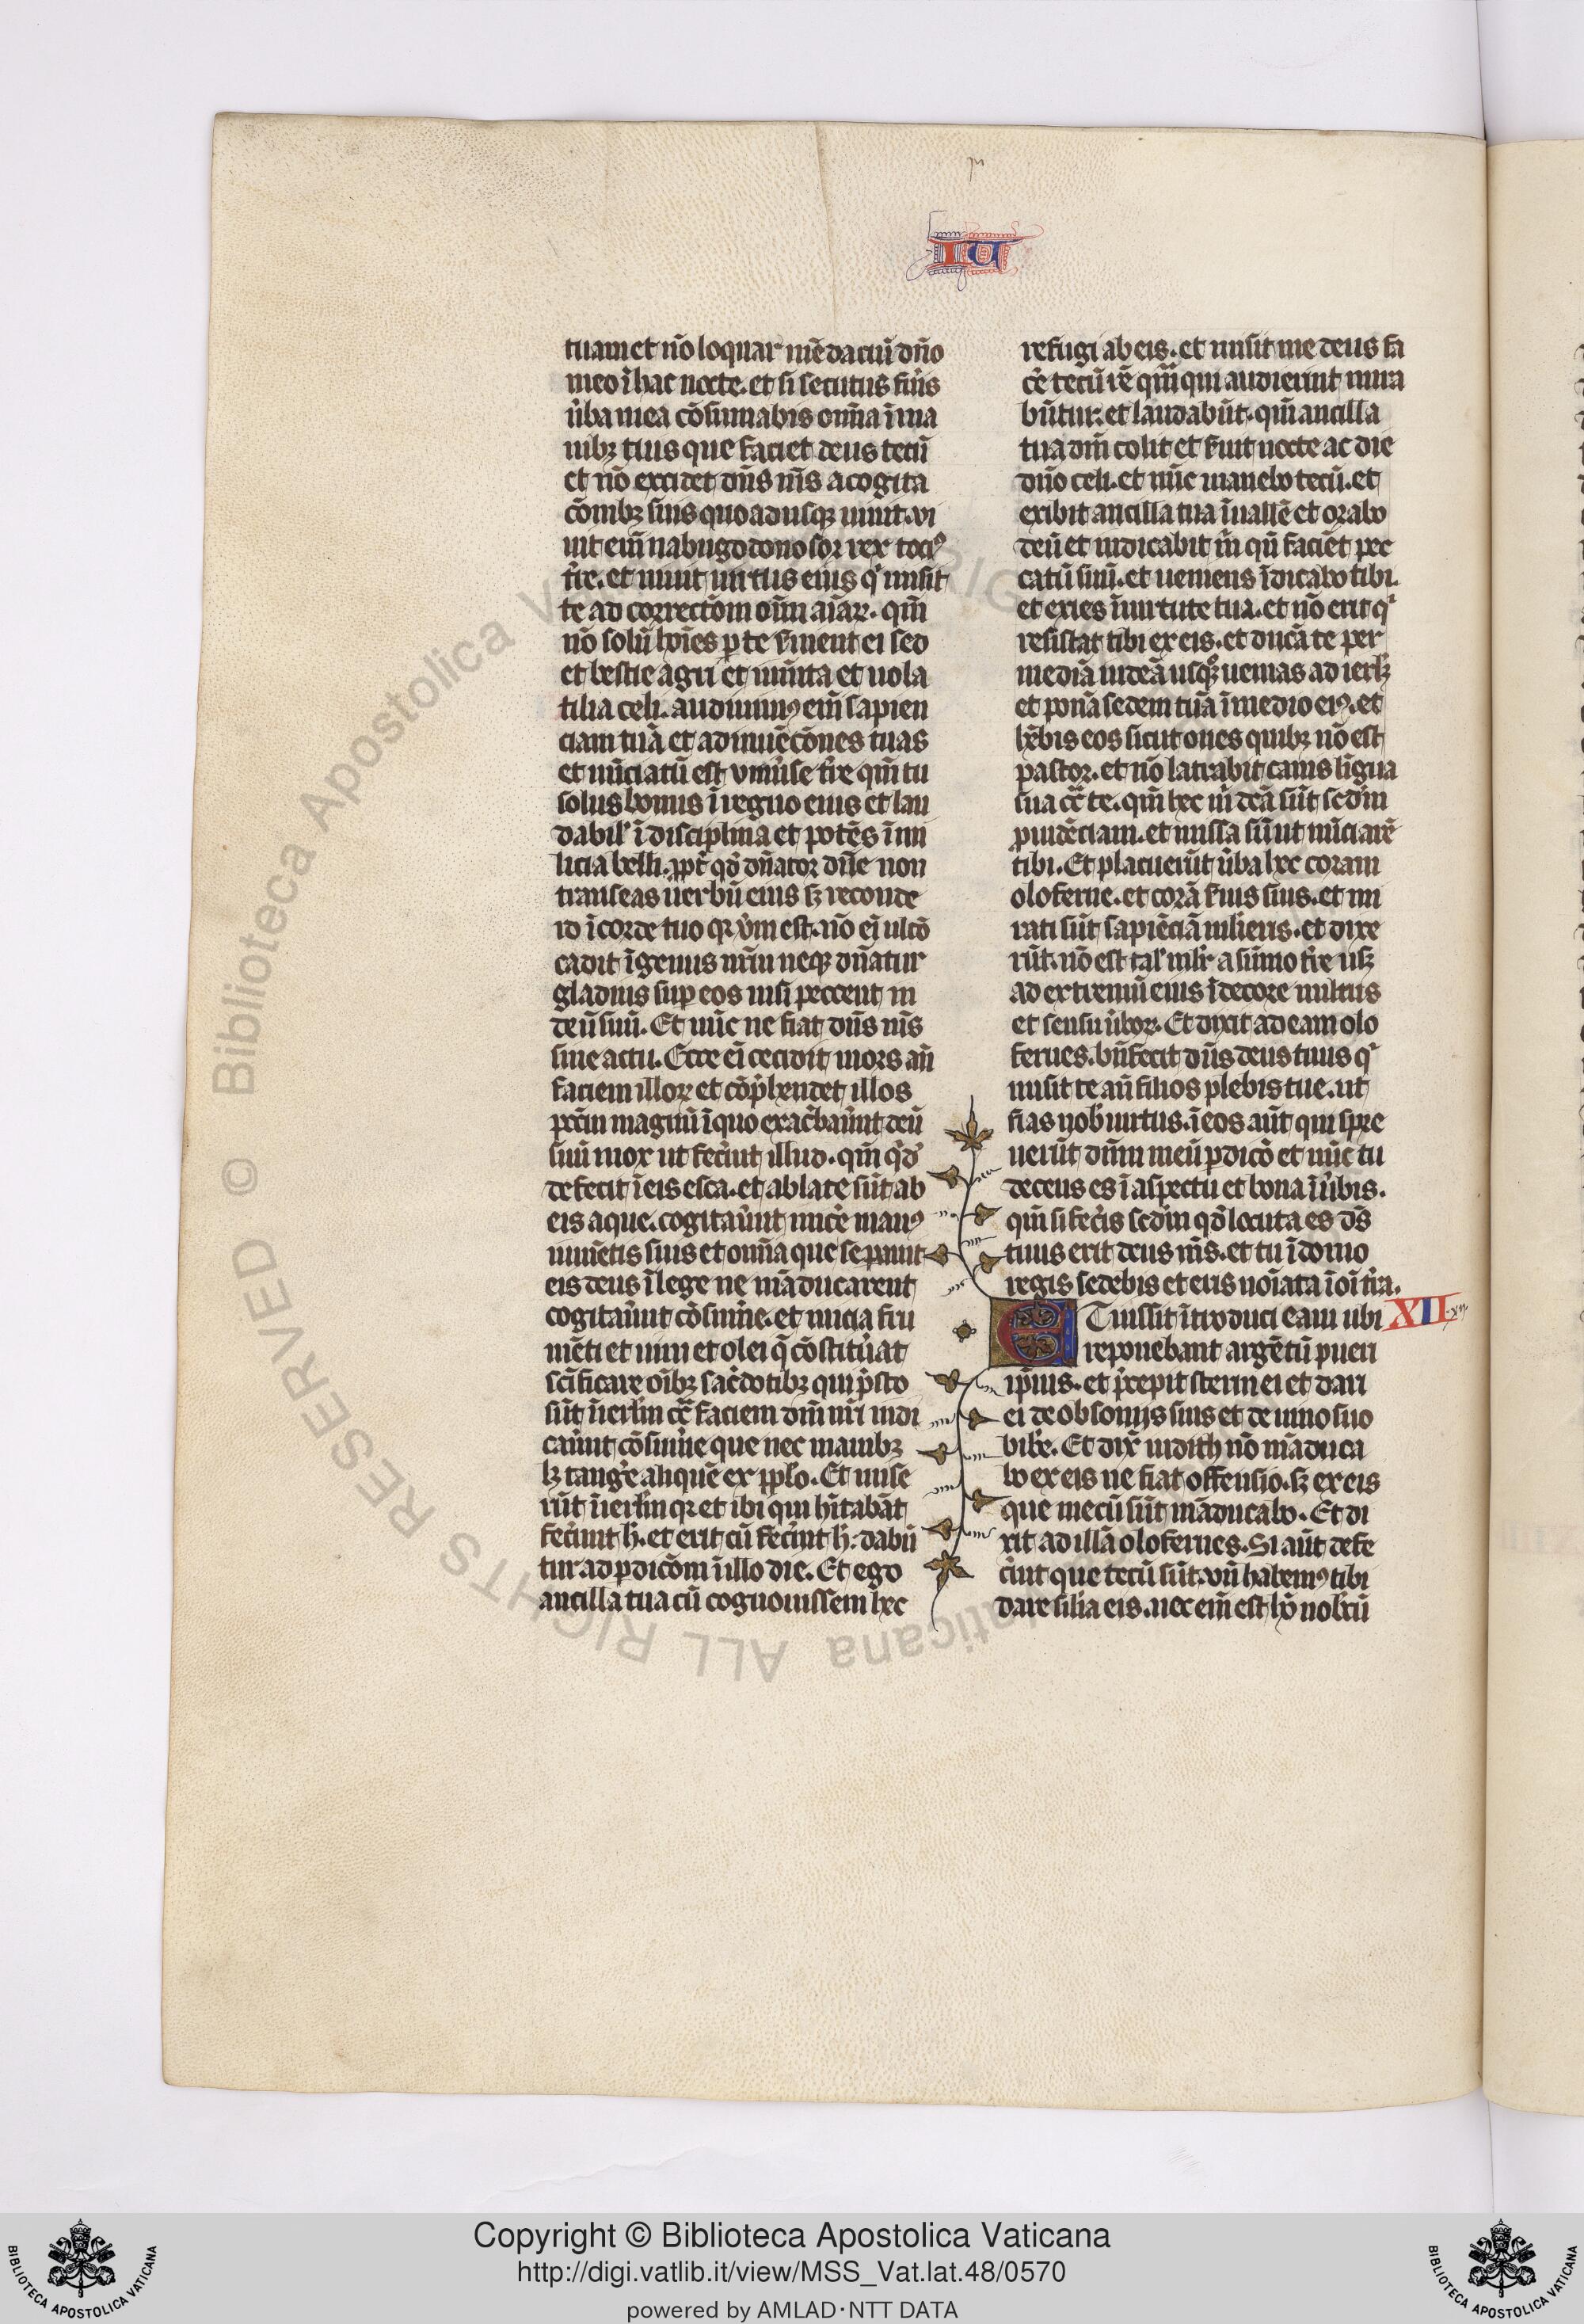 IU
tuam et nō loquar mēdaciū dño
meo ī hac nocte. et si secutus fūis
ūba mea cōsumabis omīa ī ma
nibꝫ tuis que faciet deus tecū
et nō excidet dñs m̄s a cogita
cōnibꝫ suis quoadusqꝫ uiuit. vi
uit eīm nabugodonosor rex tociꝰ
t̄re. et uiuit uirtus eius qͥ misit
te ad correctōm oīm aīarꝝ. qm̄
nō solū hoīes p̱ te s̄uient ei sed
et bestie agri et iumīta et uola
tilia celi. audiuimꝰ eīm sapien
ciam tuā et adinuēcōnes tuas
et nūciatū est vniūse t̄re qm̄ tu
solus bonus ī regno eius et lau
dabilʼ ī disciplina et potēs ī mi
licia belli. ꝓpt̄ qđ dñator dñe non
transeas ūerbū eius sꝫ reconde
id ī corde tuo qꝛ v̄m est. nō ei ulcō
cadit ī genus nr̄m neqꝫ dñatur
gladius sup̱ eos nisi peccent in
deū suū. Et nūc ne fiat dñs m̄s
sine actu. Ecce ei cecidit mors añ
faciem illorꝝ et cōp̄hendet illos
pccm̄ magnū ī quo exac̄baūnt deū
suū mox ut fec̄int illud. qm̄ qͥđ
defecit ī eis esca. et ablate sūt ab
eis aque. cogitaūnt inice manꝰ
iumētis suis et omīa que sep̱auit
eis deus ī lege ne māducarent
cogitaūnt cōsume. et inicia fru
mēti et uini et olei q̄ cōstitūat
sc̄ificare oībꝫ sac̄dotibꝫ qui p̄sto
sūt ī ierlm̄ cc̄ faciem dm̄ nr̄i indi
caūnt cōsume que nec manibꝫ
lꝫ tange aliquē ex ꝓplo. Et mise
rūt ī ierlm̄ qꝛ et ibi qui hītabāt
fec̄int h̄. et erit cū fec̄int h̄. dabū
tur ad p̱dicōm ī illo die. Et ego
ancilla tua cū cognouissem hec
refugi ab eis. et misit me deus fa
cē tecū rē qm̄ qui audierint mira
būtur. et laudabūt. qm̄ ancilla
tua dm̄ colit et s̄uit nocte ac die
dño celi. et nūc manebo tecū. et
exibit ancilla tua ī uallē et orabo
deū et indicabit m̄ qñ faciēt pec
catū suū. et ueniens īdicabo tibi.
et exies ī uirtute tua. et nō erit qͥ
resistat tibi ex eis. et ducā te per
mediā iudeā usqꝫ quo uenias ad ierlꝫ
et ponā sedem tuā ī medio eiꝰ. et
hēbis eos sicut oues quibꝫ nō est
pastor. et nō latrabit canis līgua
sua cc̄ te. qm̄ hec m̄ dca sūt scđm
ꝓuidēciam. et missa sū ut nūciarē
tibi. Et placuerūt ūba hec coram
oloferne. et corā s̄uis suis. et mi
rati sūt sapiēciā mulieris. et dixe
rūt. nō est talʼ mulr̄ a sūmo t̄re usꝫ
ad extremū eius ī decore uultus
et sensu ūborꝝ. Et dixit ad eam olo
fernes. bn̄fecit dñs deus tuus qͥ
misit te añ filios plebis tue. ut
fias nob̄ uirtus. ī eos aūt qui spre
uerūt dm̄m meū p̱dicō et nūc tu
decens es ī aspectu et bona ī ūbis.
qm̄ si fec̄is scđm qđ locuta es ds̄
tuus erit deus m̄s. et tu ī domo
regis sedebis et eris noīata ī oī t̄ra.
ET iussit ītroduci eam ubi XII
reponebant argētū pueri
ipīus. et p̄cepit sterni ei et dari
ei de obsoniis suis et de uino suo
bibe. Et dix̄ iudith nō māduca
bo ex eis ne fiat offensio. sꝫ ex eis
que mecū sūt māducabo. Et di
xit ad illā olofernes. Si aūt defe
c̄int que tecū sūt. vñ habemꝰ tibi
dare silia eis. nec eīm est hō nobcū
BIBLIOTECA APOSTOLICA VATICANA
Copyright © Biblioteca Apostolica Vaticana
http://digi.vatlib.it/view/MSS_Vat.lat.48/0570
powered by AMLAD·NTT DATA
BIBLIOTECA APOSTOLICA VATICANA
© Biblioteca Apostolica Vaticana ALL RIGHTS RESERVED